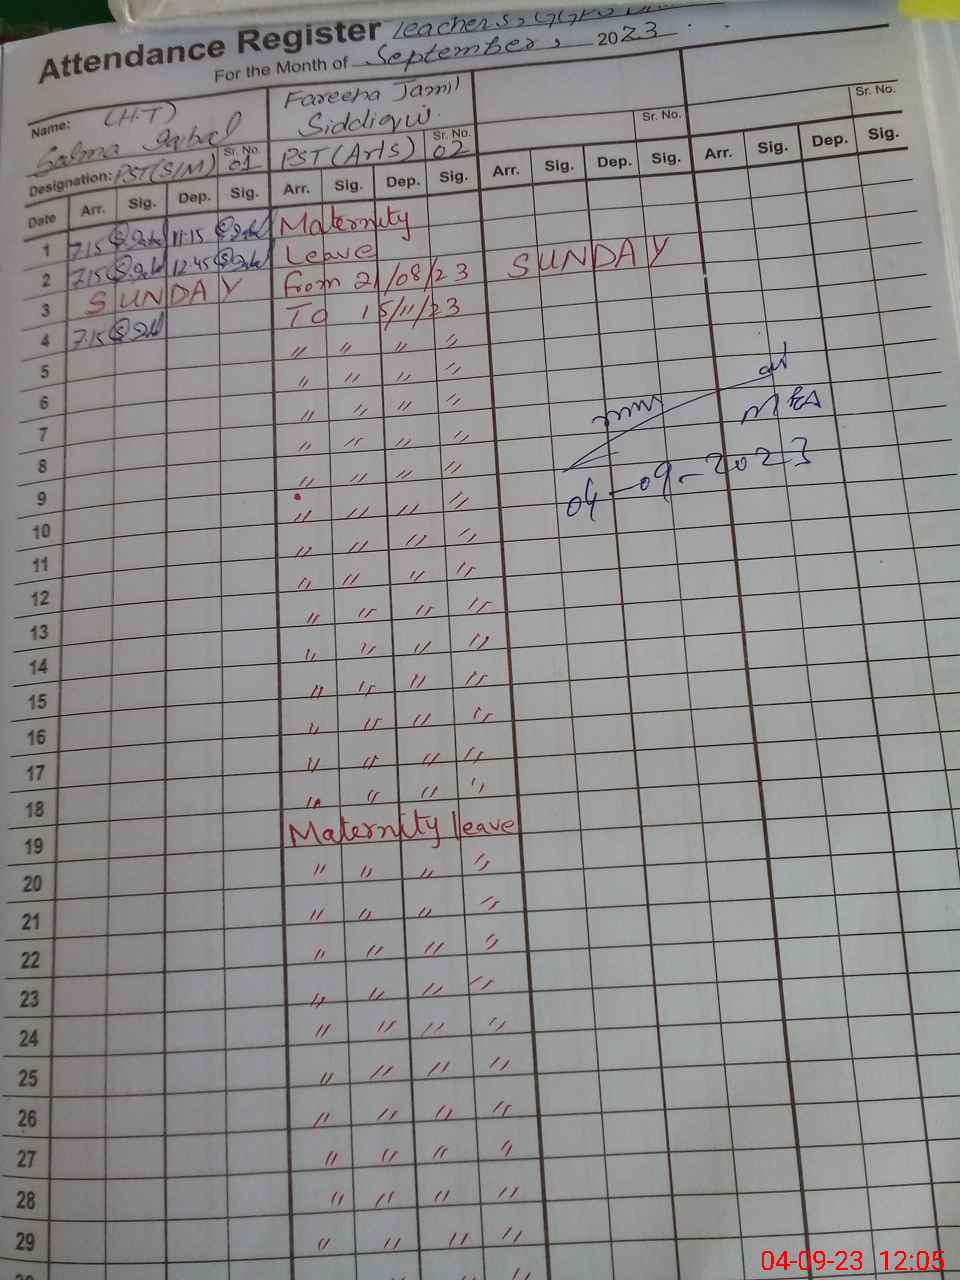 Attendance Register Teachers,
For the Month of September, 2023
Name: (H.T) Salma Iqbal
Designation: PST(S/M) Sr. No. 01
Fareeha Jamil Siddiqui
PST(Arts) Sr. No. 02
Sr. No.
Sr. No.
Date Arr. Sig. Dep. Sig. Arr. Sig. Dep. Sig. Arr. Sig. Dep. Sig. Arr. Sig. Dep. Sig.
1 7.15 11.15 Maternity
2 7.15 12.45 Leave
3 SUNDAY from 21/08/23 SUNDAY
4 7.15 To 15/11/23
5 " " " "
6 " " " "
7 " " " "
8 " " " "
9 " " " "
10 " " " "
11 " " " "
12 " " " "
13 " " " "
14 " " " "
15 " " " "
16 " " " "
17 " " " "
18 " " " "
19 Maternity leave
20 " " " "
21 " " " "
22 " " " "
23 " " " "
24 " " " "
25 " " " "
26 " " " "
27 " " " "
28 " " " "
29 " " " "
MEA
04-09-2023
04-09-23 12:05